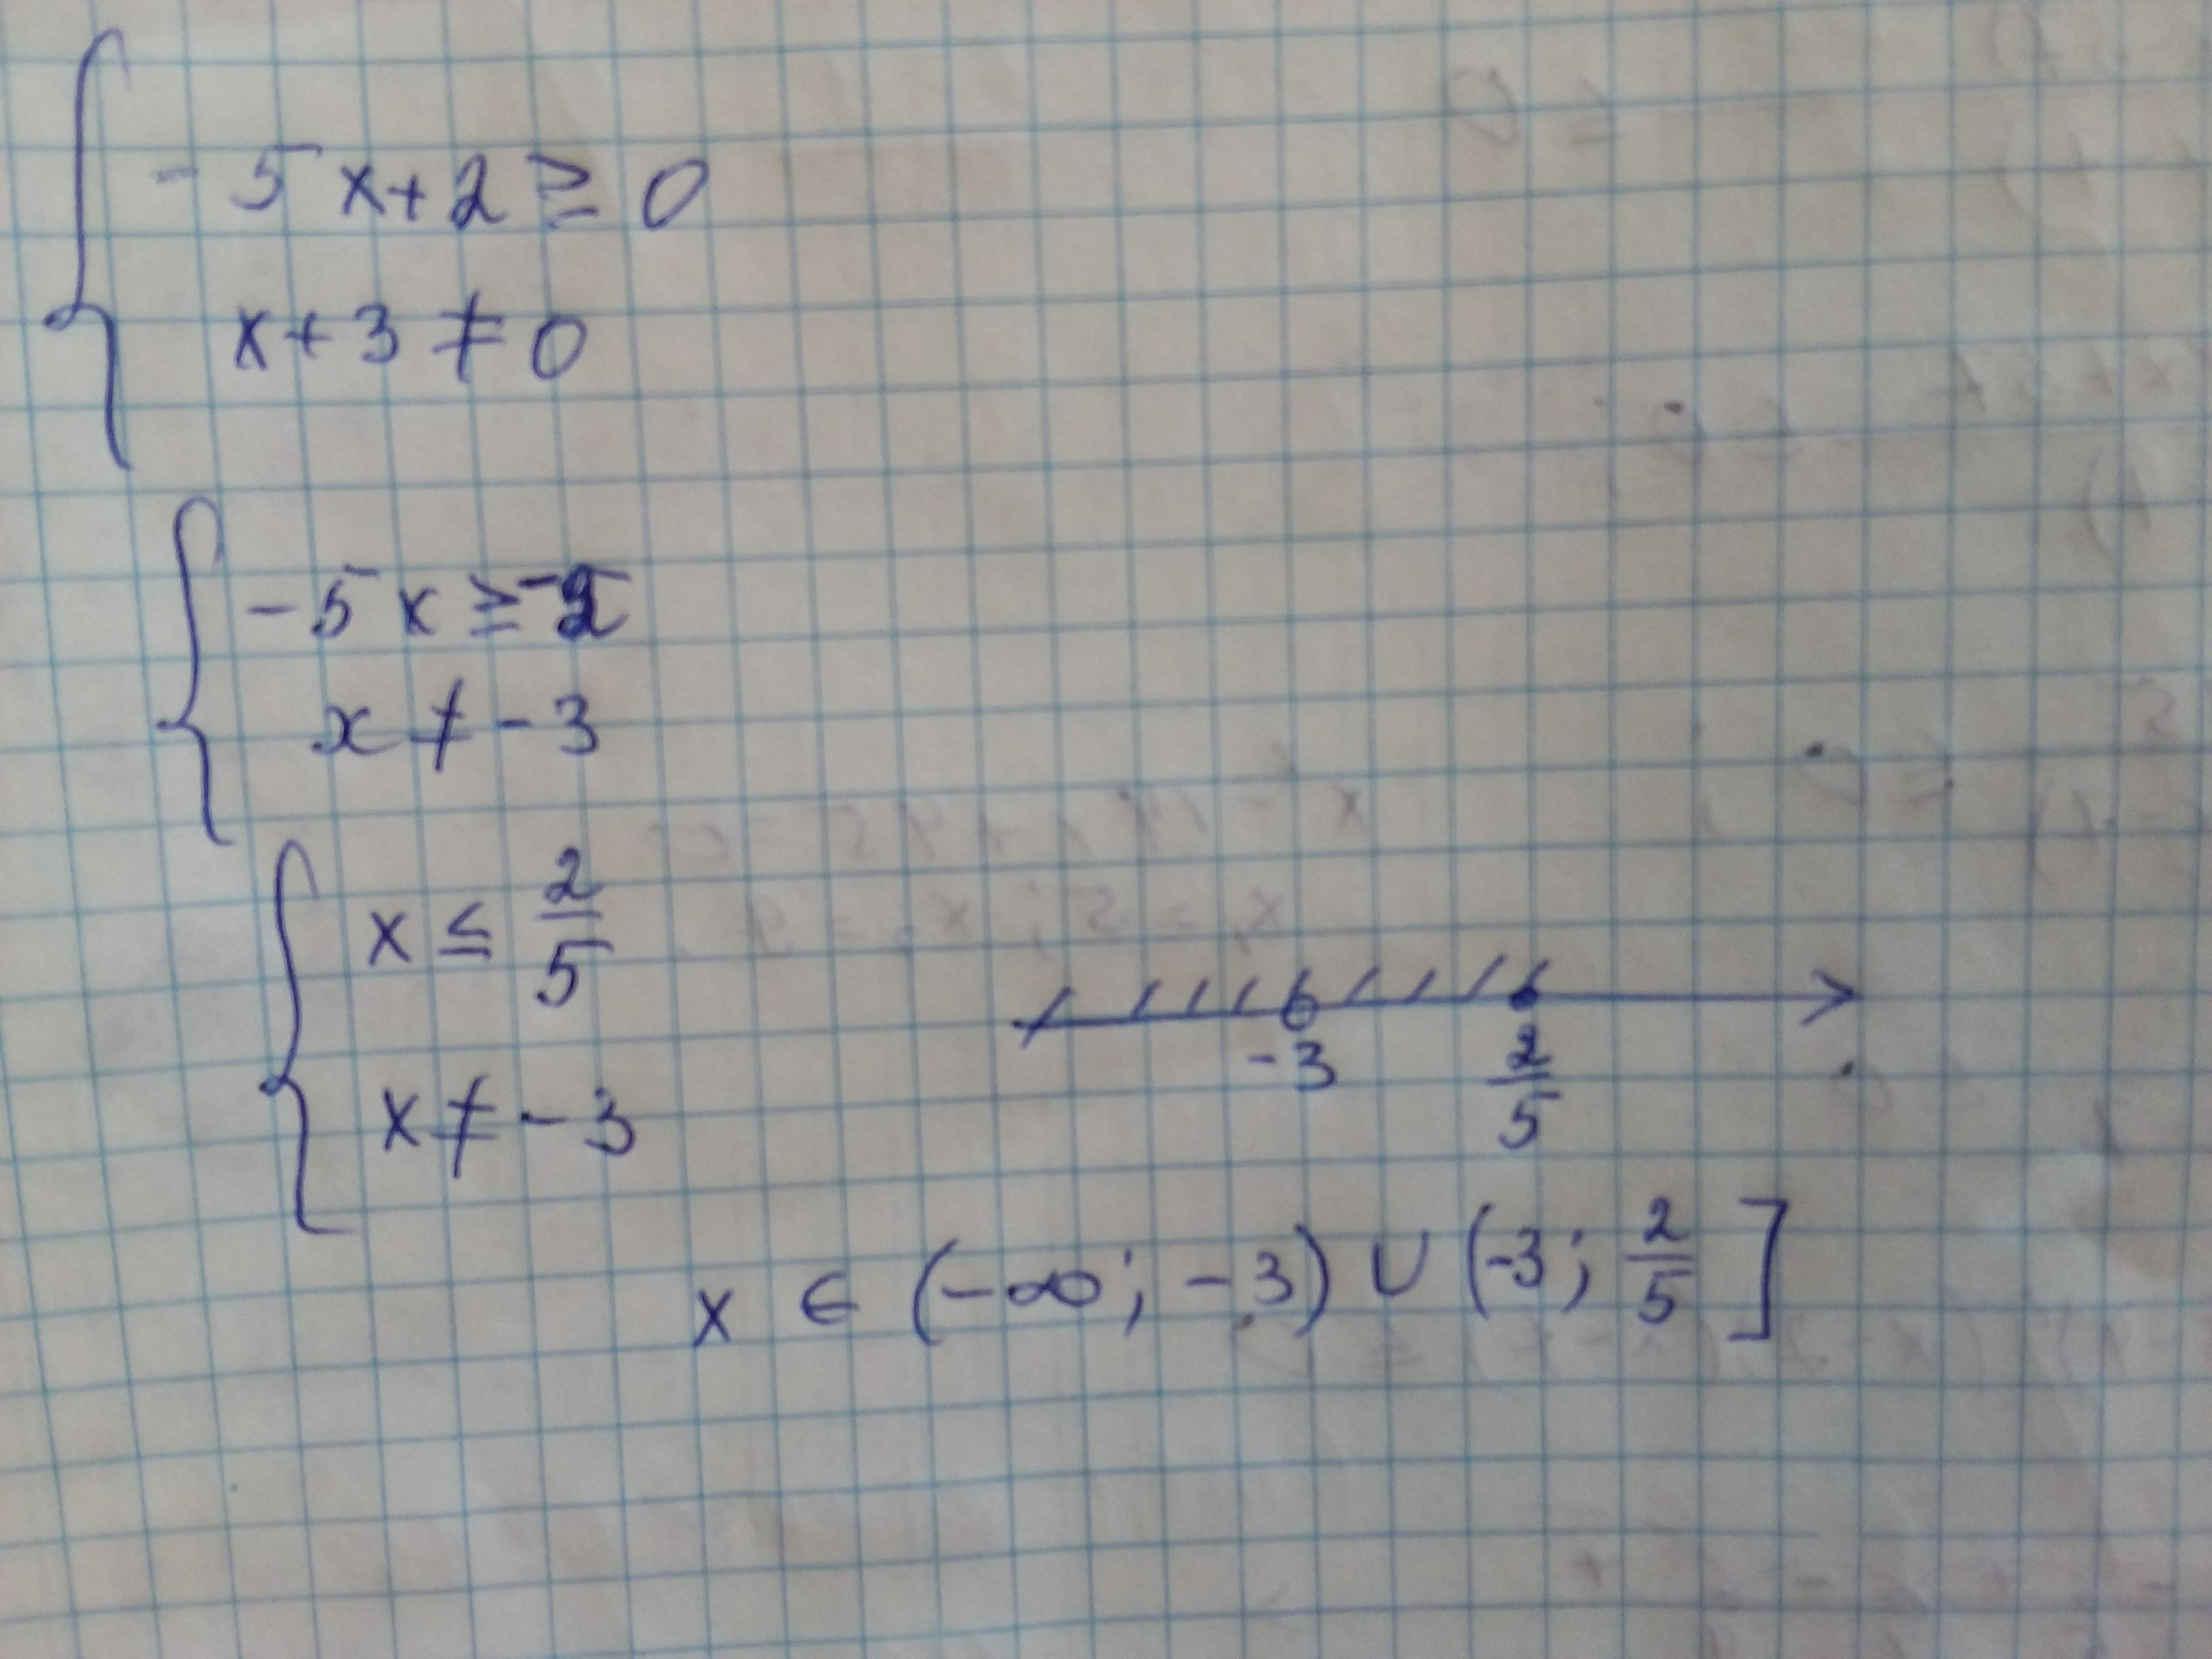 - 5x+2 ≥ 0
x+3 ≠ 0
-5x ≥ -2
x ≠ -3
x ≤ 2/5
x ≠ -3
-3 2/5
x ∈ (-∞; -3) ∪ (-3; 2/5]